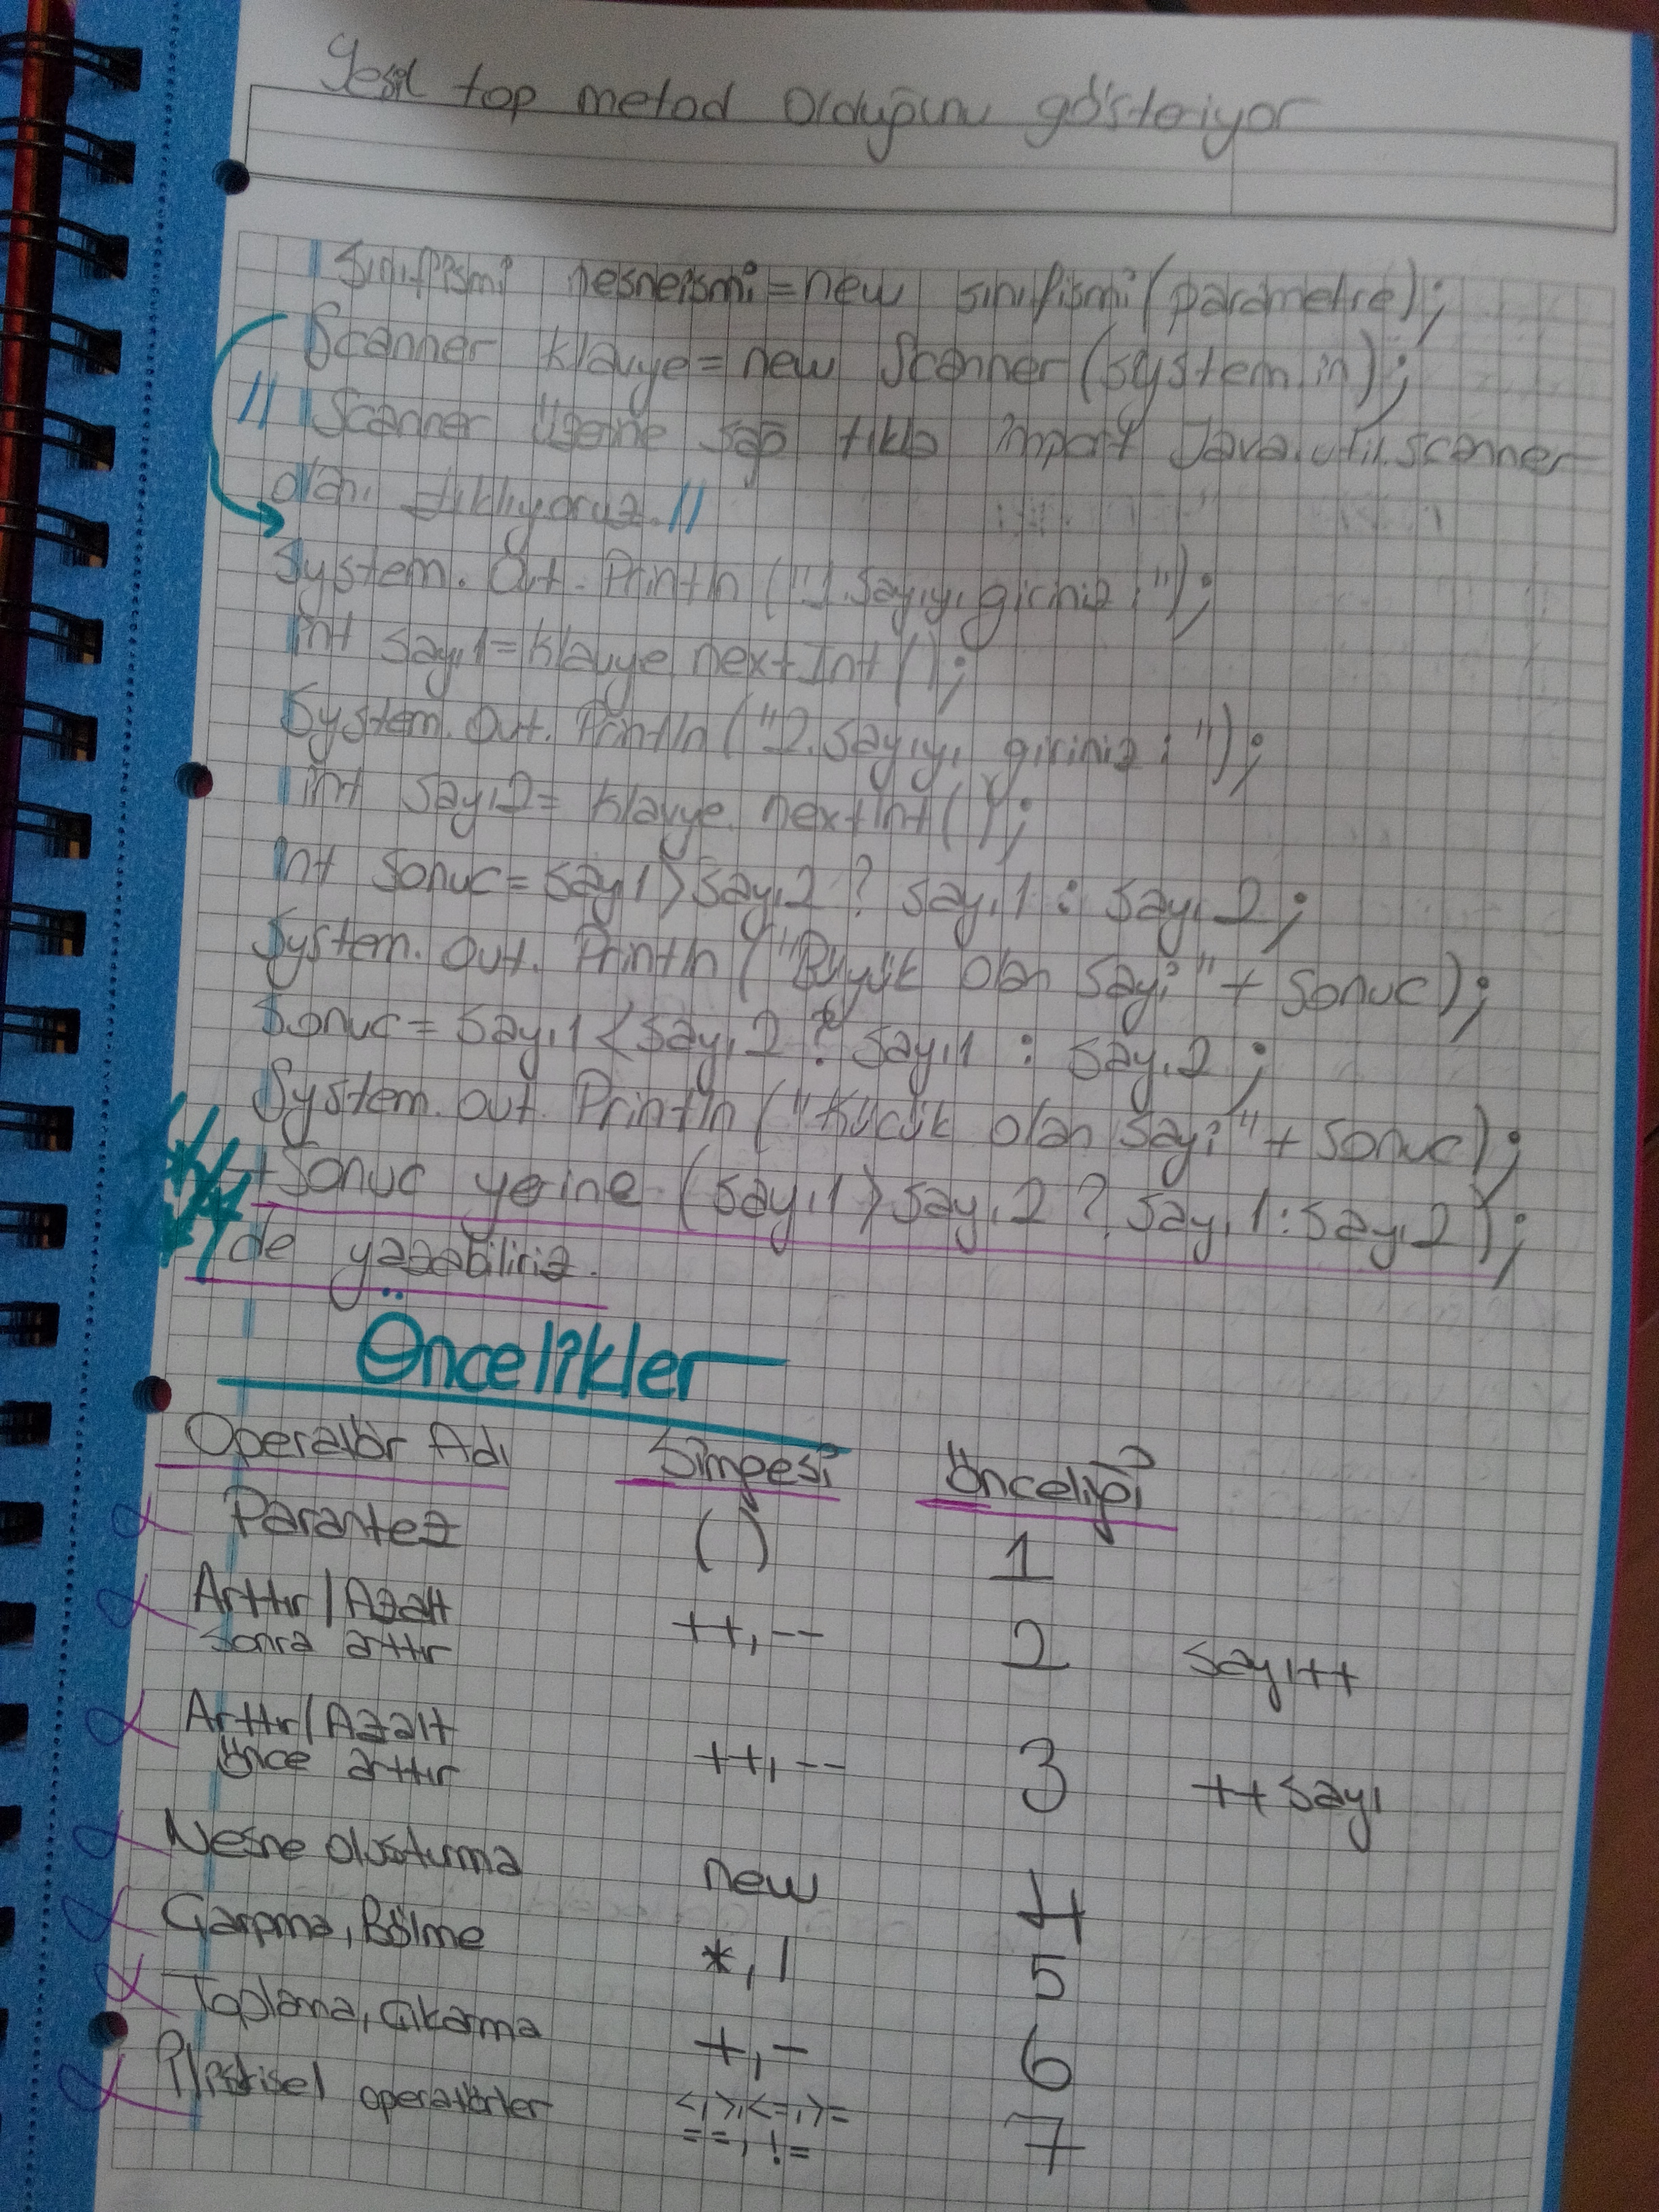 Yesil top metod olduğunu gösteriyor
Sınıfismi nesneismi=new sınıfismi(parametre);
Scanner klavye=new Scanner(system.in);
// Scanner üzerine sağ tıkla import Java.util.scanner
olanı tıklıyoruz.//
System.Out.Println("1.Sayıyı giriniz:");
int sayı1=klavye.nextInt();
System.out.Println("2.sayıyı giriniz:");
int sayı2=klavye.nextInt();
int sonuc=sayı1>sayı2?sayı1:sayı2;
System.out.Println("Büyük olan sayı"+sonuc);
Sonuc=sayı1<sayı2?sayı1:sayı2;
System.out.Println("Kücük olan sayı"+sonuc);
+Sonuc yerine (sayı1>sayı2?sayı1:sayı2);
de yazabiliriz.
Öncelikler
Operatör Adı Simgesi Önceliği
Parantez ( ) 1
Arttır/Azalt
sonra arttır ++,-- 2 sayı++
Arttır/Azalt
önce arttır ++,-- 3 ++sayı
Nesne oluşturma new 4
Çarpma, Bölme *,/ 5
Toplama, Çıkarma +,- 6
İlişkisel operatörler <,>,<=,>= 7
==, !=